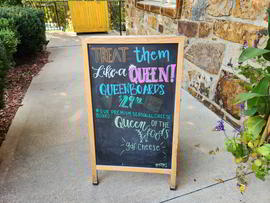 TREAT them
Like a QUEEN!
QUEENBOARDS
$129
* OUR PREMIUM SEASONAL CHEESE
BOARD *
Queen OF THE
foods
got cheese